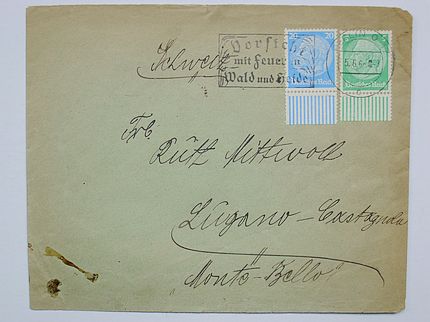 Schweiz
Vorsicht
mit Feuer in
Wald und Heide
20
Deutsches Reich
Frl.
Mittwoch
Lugano-Castagnola
"Monte-Bello"